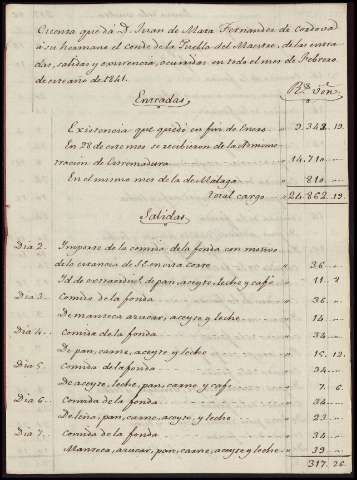 Cuenta que dá D. Juan de Mata Fernandez de Cordova
á su hermano el Conde de la Puebla del Maestre, de las entra
das, salidas y existencia, ocurridas en todo el mes de Febrero
de este año de 1841.
Rs. von.
Entradas
Existencia que quedó en fin de Enero " 9.342.. 19.
En 28 de este mes se recibieron de la Adminis
tracion de Estremadura " 14.710
En el mismo mes de la de Malaga " 810
Total cargo " 24.862.. 19.
Salidas
Dia 2. Importe de la comida de la fonda con motivo
de la estancia de S.E. en esta corte " 36
Id. de extraordin.s de pan, aceyte, leche y café " 11
Dia 3. Comida de la fonda " 36
De manteca azucar, aceyte y leche " 14
Dia 4. Comida de la fonda " 34
De pan, carne, aceyte, y leche " 15.. 12.
Dia 5. Comida de la fonda " 34
De aceyte, leche, pan, carne, y cafe " 7.. 6.
Dia 6. Comida de la fonda " 34
De leña, pan, carne, aceyte, y leche " 23
Dia 7. Comida de la fonda " 34
Manteca, azucar, pan, carne, aceyte, y leche " 39
317. 26.